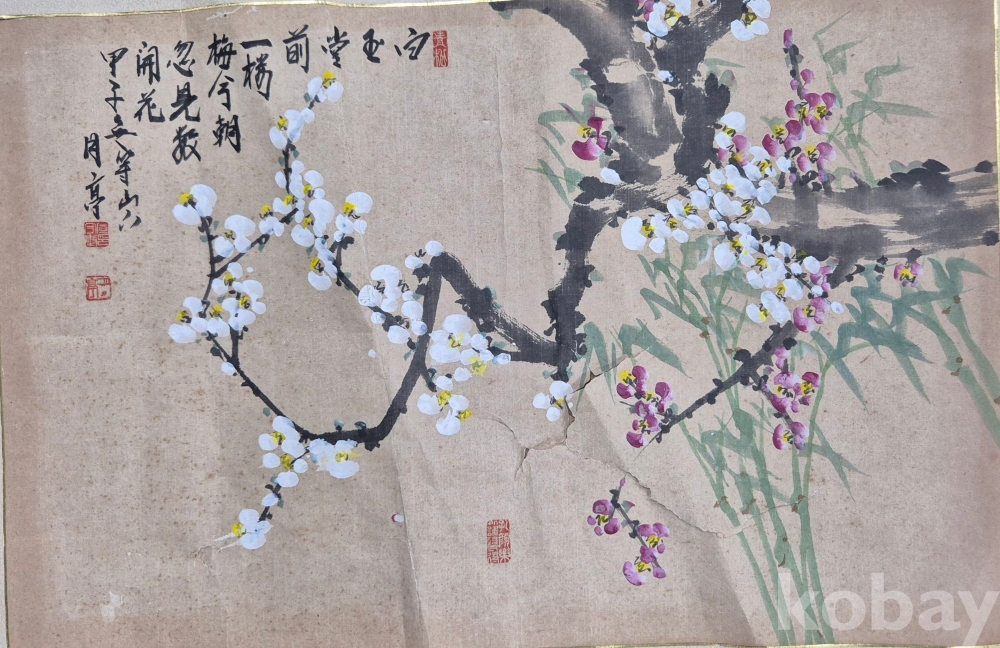 白
玉
堂
前
一樹
梅今朝
忽見數
開花
甲子
月亭
kobay